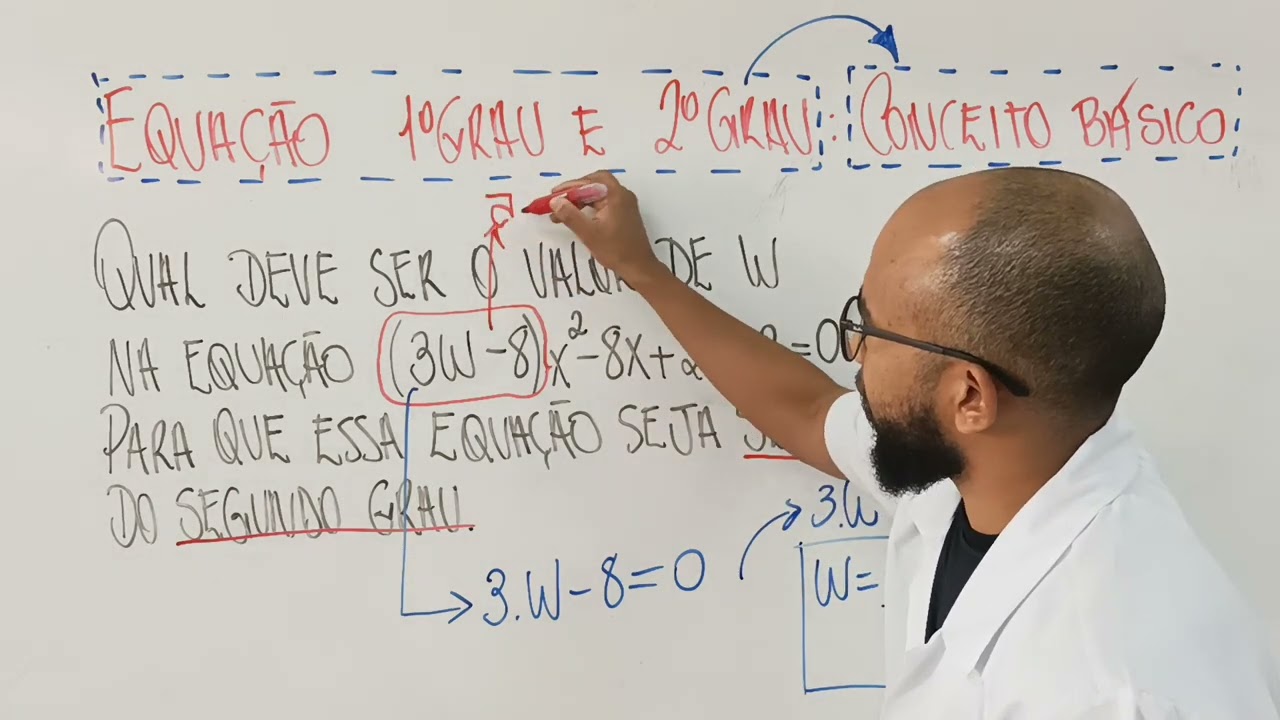 EQUAÇÃO 1º GRAU E 2º GRAU: CONCEITO BÁSICO
QUAL DEVE SER O VALOR DE W
NA EQUAÇÃO (3W-8)x²-8x+ =0
PARA QUE ESSA EQUAÇÃO SEJA
DO SEGUNDO GRAU.
3.W
3.W-8=0
W=